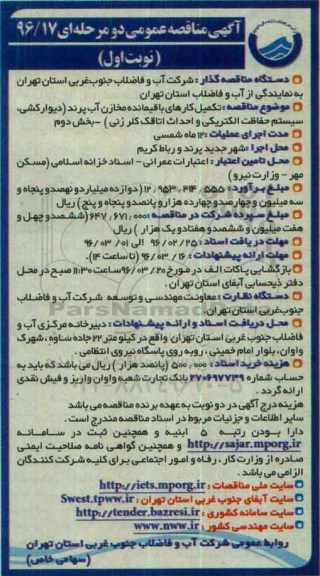 آگهی مناقصه عمومی دو مرحله‌ای ۹۶/۱۷
(نوبت اول)
دستگاه مناقصه گذار : شرکت آب و فاضلاب جنوب‌غربی استان تهران
به نمایندگی از آب و فاضلاب استان تهران
موضوع مناقصه : تکمیل کارهای باقیمانده مخازن آب پرند (دیوارکشی،
سیستم حفاظت الکتریکی و احداث اتاقک کلر زنی ) -بخش دوم
مدت اجرای عملیات : ۱۲ ماه شمسی
محل اجرا : شهر جدید پرند و رباط کریم
محل تامین اعتبار : اعتبارات عمرانی – اسناد خزانه اسلامی (مسکن
مهر - وزارت نیرو )
مبلغ برآورد : ۱۲,۹۵۳,۴۱۴,۵۵۵ (دوازده میلیارد و نهصد و پنجاه و
سه میلیون و چهارصد و چهارده هزار و پانصد و پنجاه و پنج) ریال
مبلغ سپرده شرکت در مناقصه : ۶۴۷,۶۷۱,۰۰۰ (ششصد و چهل و
هفت میلیون و ششصد و هفتاد و یک هزار ) ریال
مهلت دریافت اسناد : ۹۶/۰۲/۲۵ الی ۹۶/۰۳/۰۱
مهلت ارائه پیشنهادات : ۹۶/۰۳/۱۶ (تا ساعت ۱۴).
بازگشایی پاکات الف در مورخ ۹۶/۰۳/۲۰ ساعت ۱۱:۳۰ صبح در محل
دفتر ذیحسابی آبفای استان تهران .
دستگاه نظارت : معاونت مهندسی و توسعه شرکت آب و فاضلاب
جنوب‌غربی استان تهران
محل دریافت اسناد و ارائه پیشنهادات : دبیرخانه مرکزی آب و
فاضلاب جنوب غربی استان تهران واقع در کیلومتر ۲۲ جاده ساوه ، شهرک
واوان، بلوار امام خمینی ، روبه روی پاسگاه نیروی انتظامی .
هزینه خرید اسناد : ۵۰۰,۰۰۰ (پانصد هزار ) ریال می باشد که باید به
حساب شماره ۲۷۰۶۹۷۷۳۹ بانک تجارت شعبه واوان واریز و فیش نقدی
ارائه گردد .
هزینه درج آگهی در دو نوبت به عهده برنده مناقصه می باشد
سایر اطلاعات و جزئیات مربوط در اسناد مناقصه مندرج است .
دارا بودن رتبه ۵ ابنیه و همچنین ثبت در سامانه
http://sajar.mporg.ir و همچنین گواهی نامه صلاحیت ایمنی
صادره از وزارت کار ، رفاه و امور اجتماعی برای کلیه شرکت کنندگان
الزامی می باشد .
سایت ملی مناقصات : http://iets.mporg.ir
سایت آبفای جنوب غربی استان تهران : Swest.tpww.ir
سایت سامانه کشوری : http://tender.bazresi.ir
سایت مهندسی کشور : www.nww.ir
روابط عمومی شرکت آب و فاضلاب جنوب غربی استان تهران
(سهامی خاص)